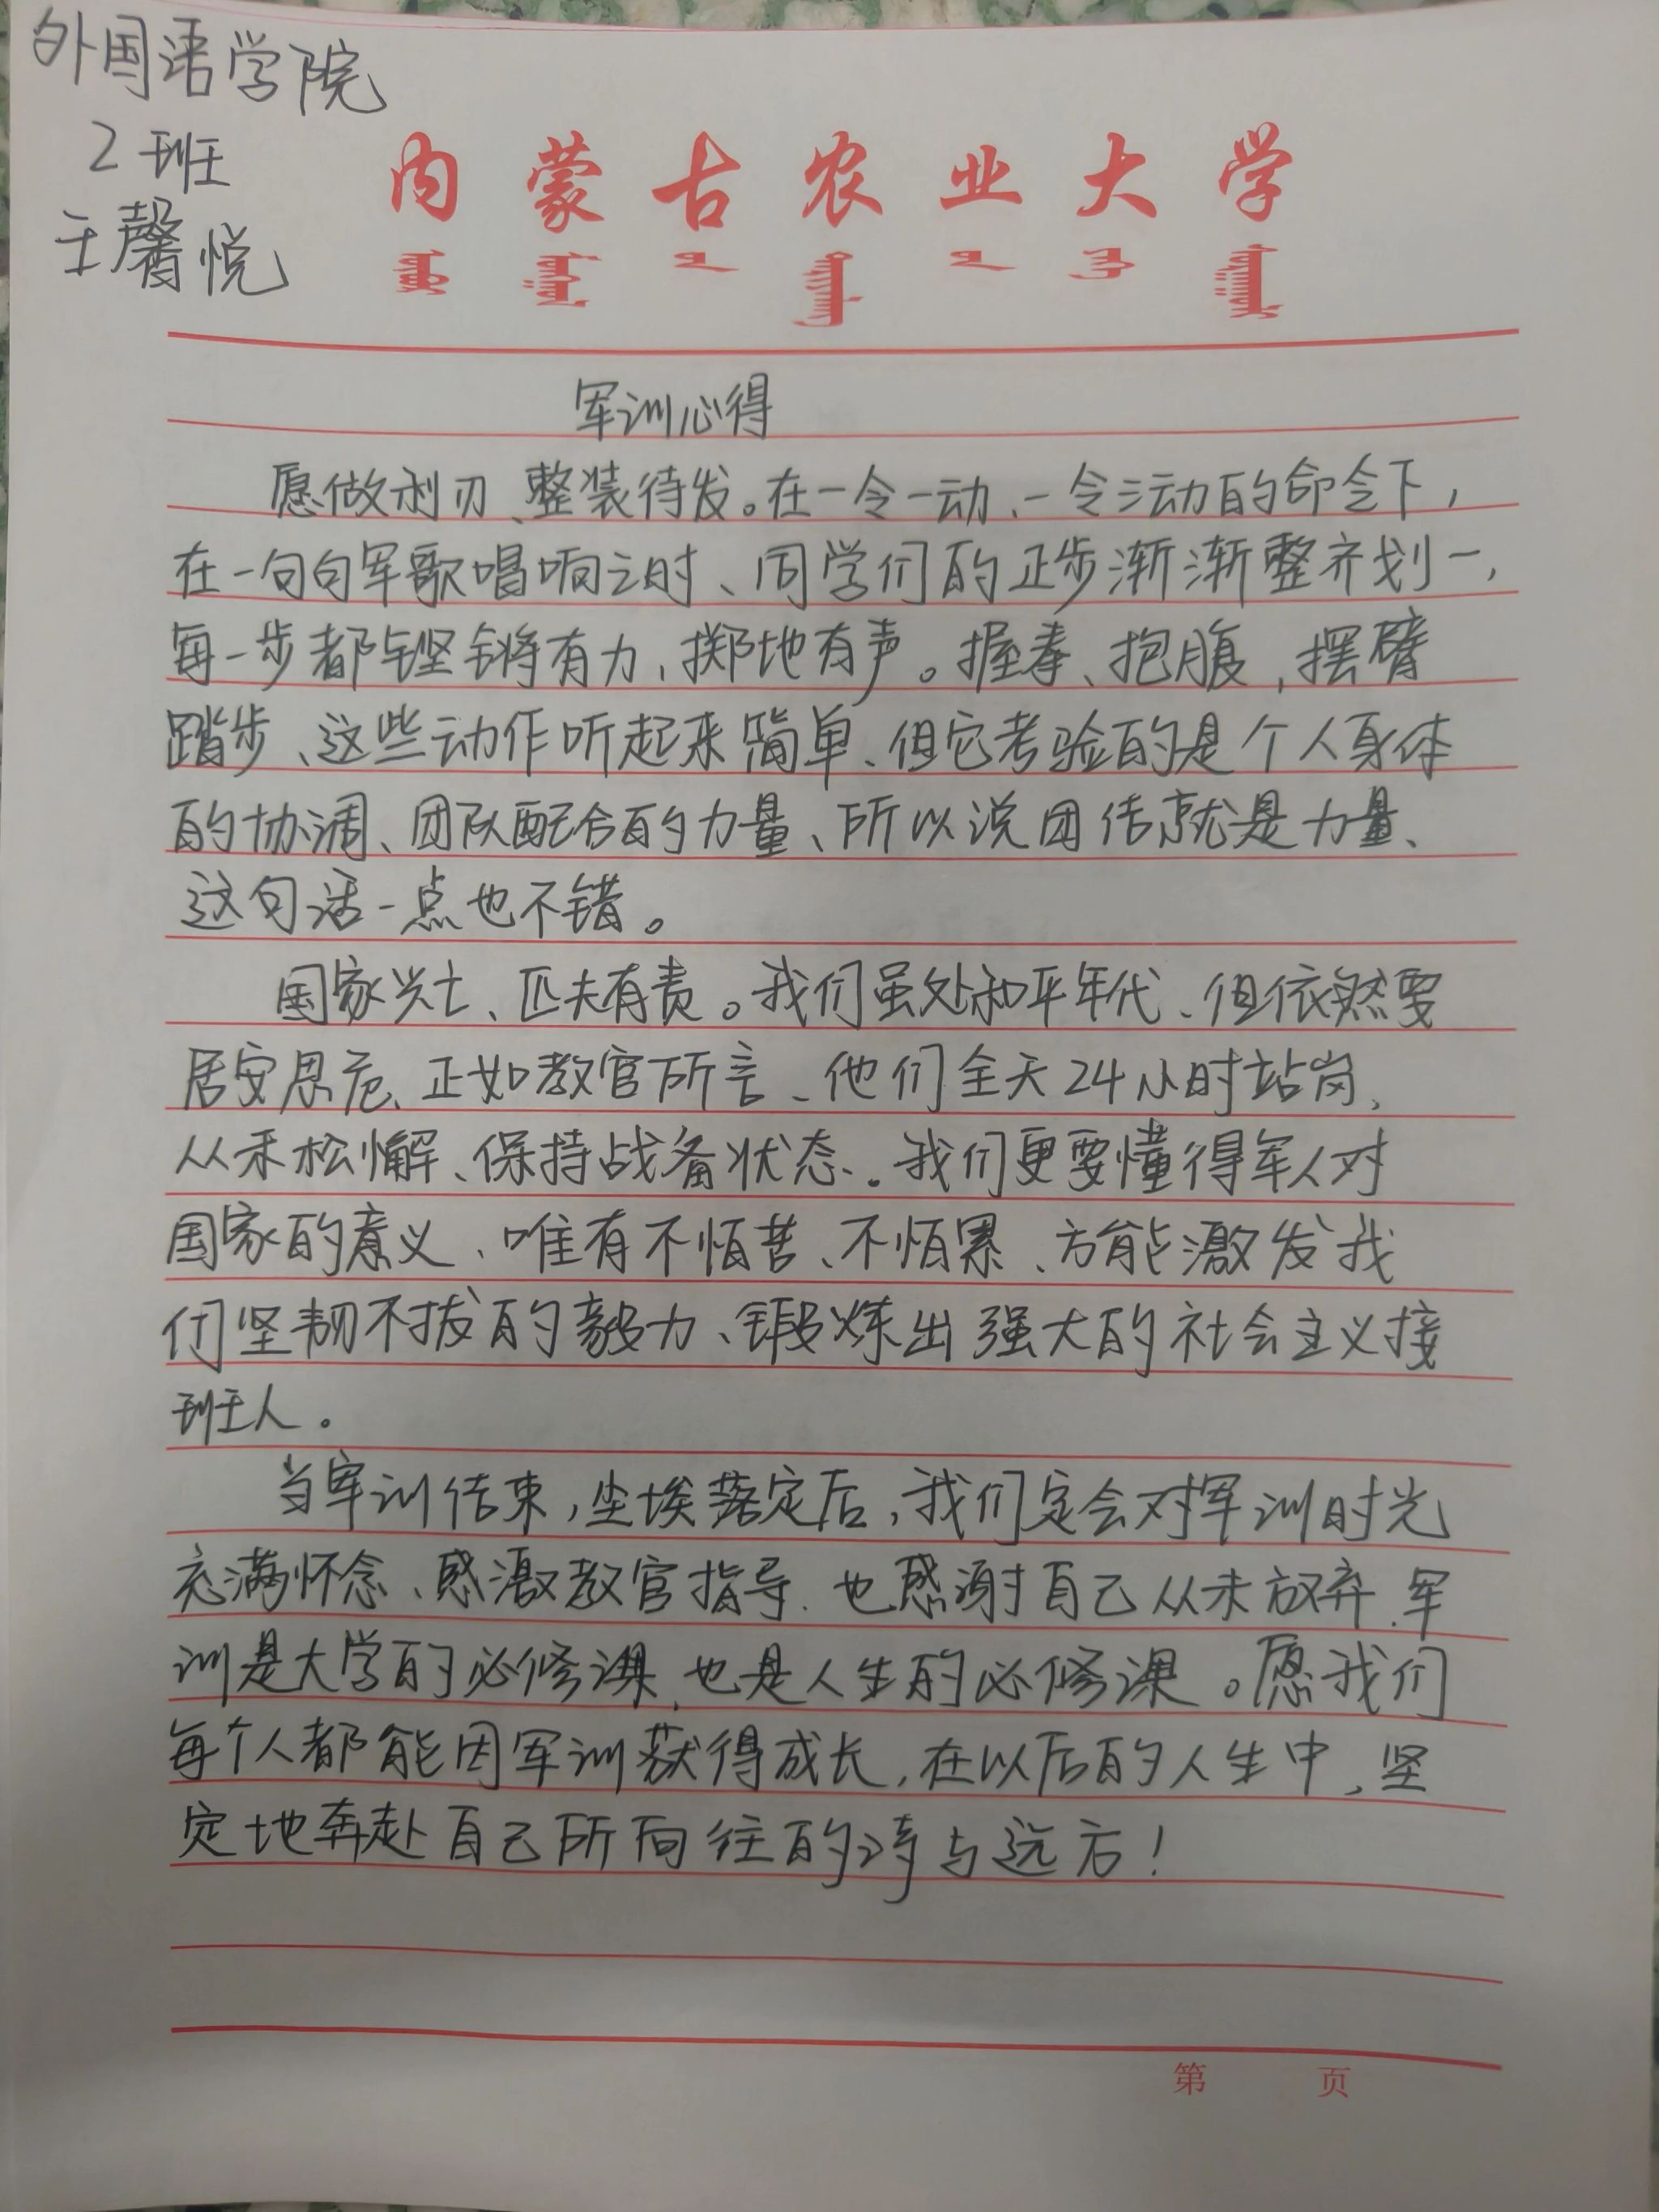 外国语学院
2班
王馨悦
内蒙古农业大学
军训心得
愿做利刃、整装待发。在一令一动、一令三动的命令下，
在一句句军歌唱响之时、同学们的正步渐渐整齐划一，
每一步都铿锵有力，掷地有声。握拳、抱腹，摆臂
踏步、这些动作听起来简单、但它考验的是个人身体
的协调、团队配合的力量、所以说团结就是力量、
这句话一点也不错。
国家兴亡、匹夫有责。我们虽处和平年代、但依然要
居安思危、正如教官所言、他们全天24小时站岗、
从未松懈、保持战备状态、。我们更要懂得军人对
国家的意义、唯有不怕苦、不怕累、方能激发我
们坚韧不拔的毅力、锻炼出强大的社会主义接
班人。
当军训结束，尘埃落定后，我们定会对军训时光
充满怀念、感激教官指导、也感谢自己从未放弃、军
训是大学的必修课、也是人生的必修课。愿我们
每个人都能因军训获得成长，在以后的人生中，坚
定地奔赴自己所向往的诗与远方！
第 页